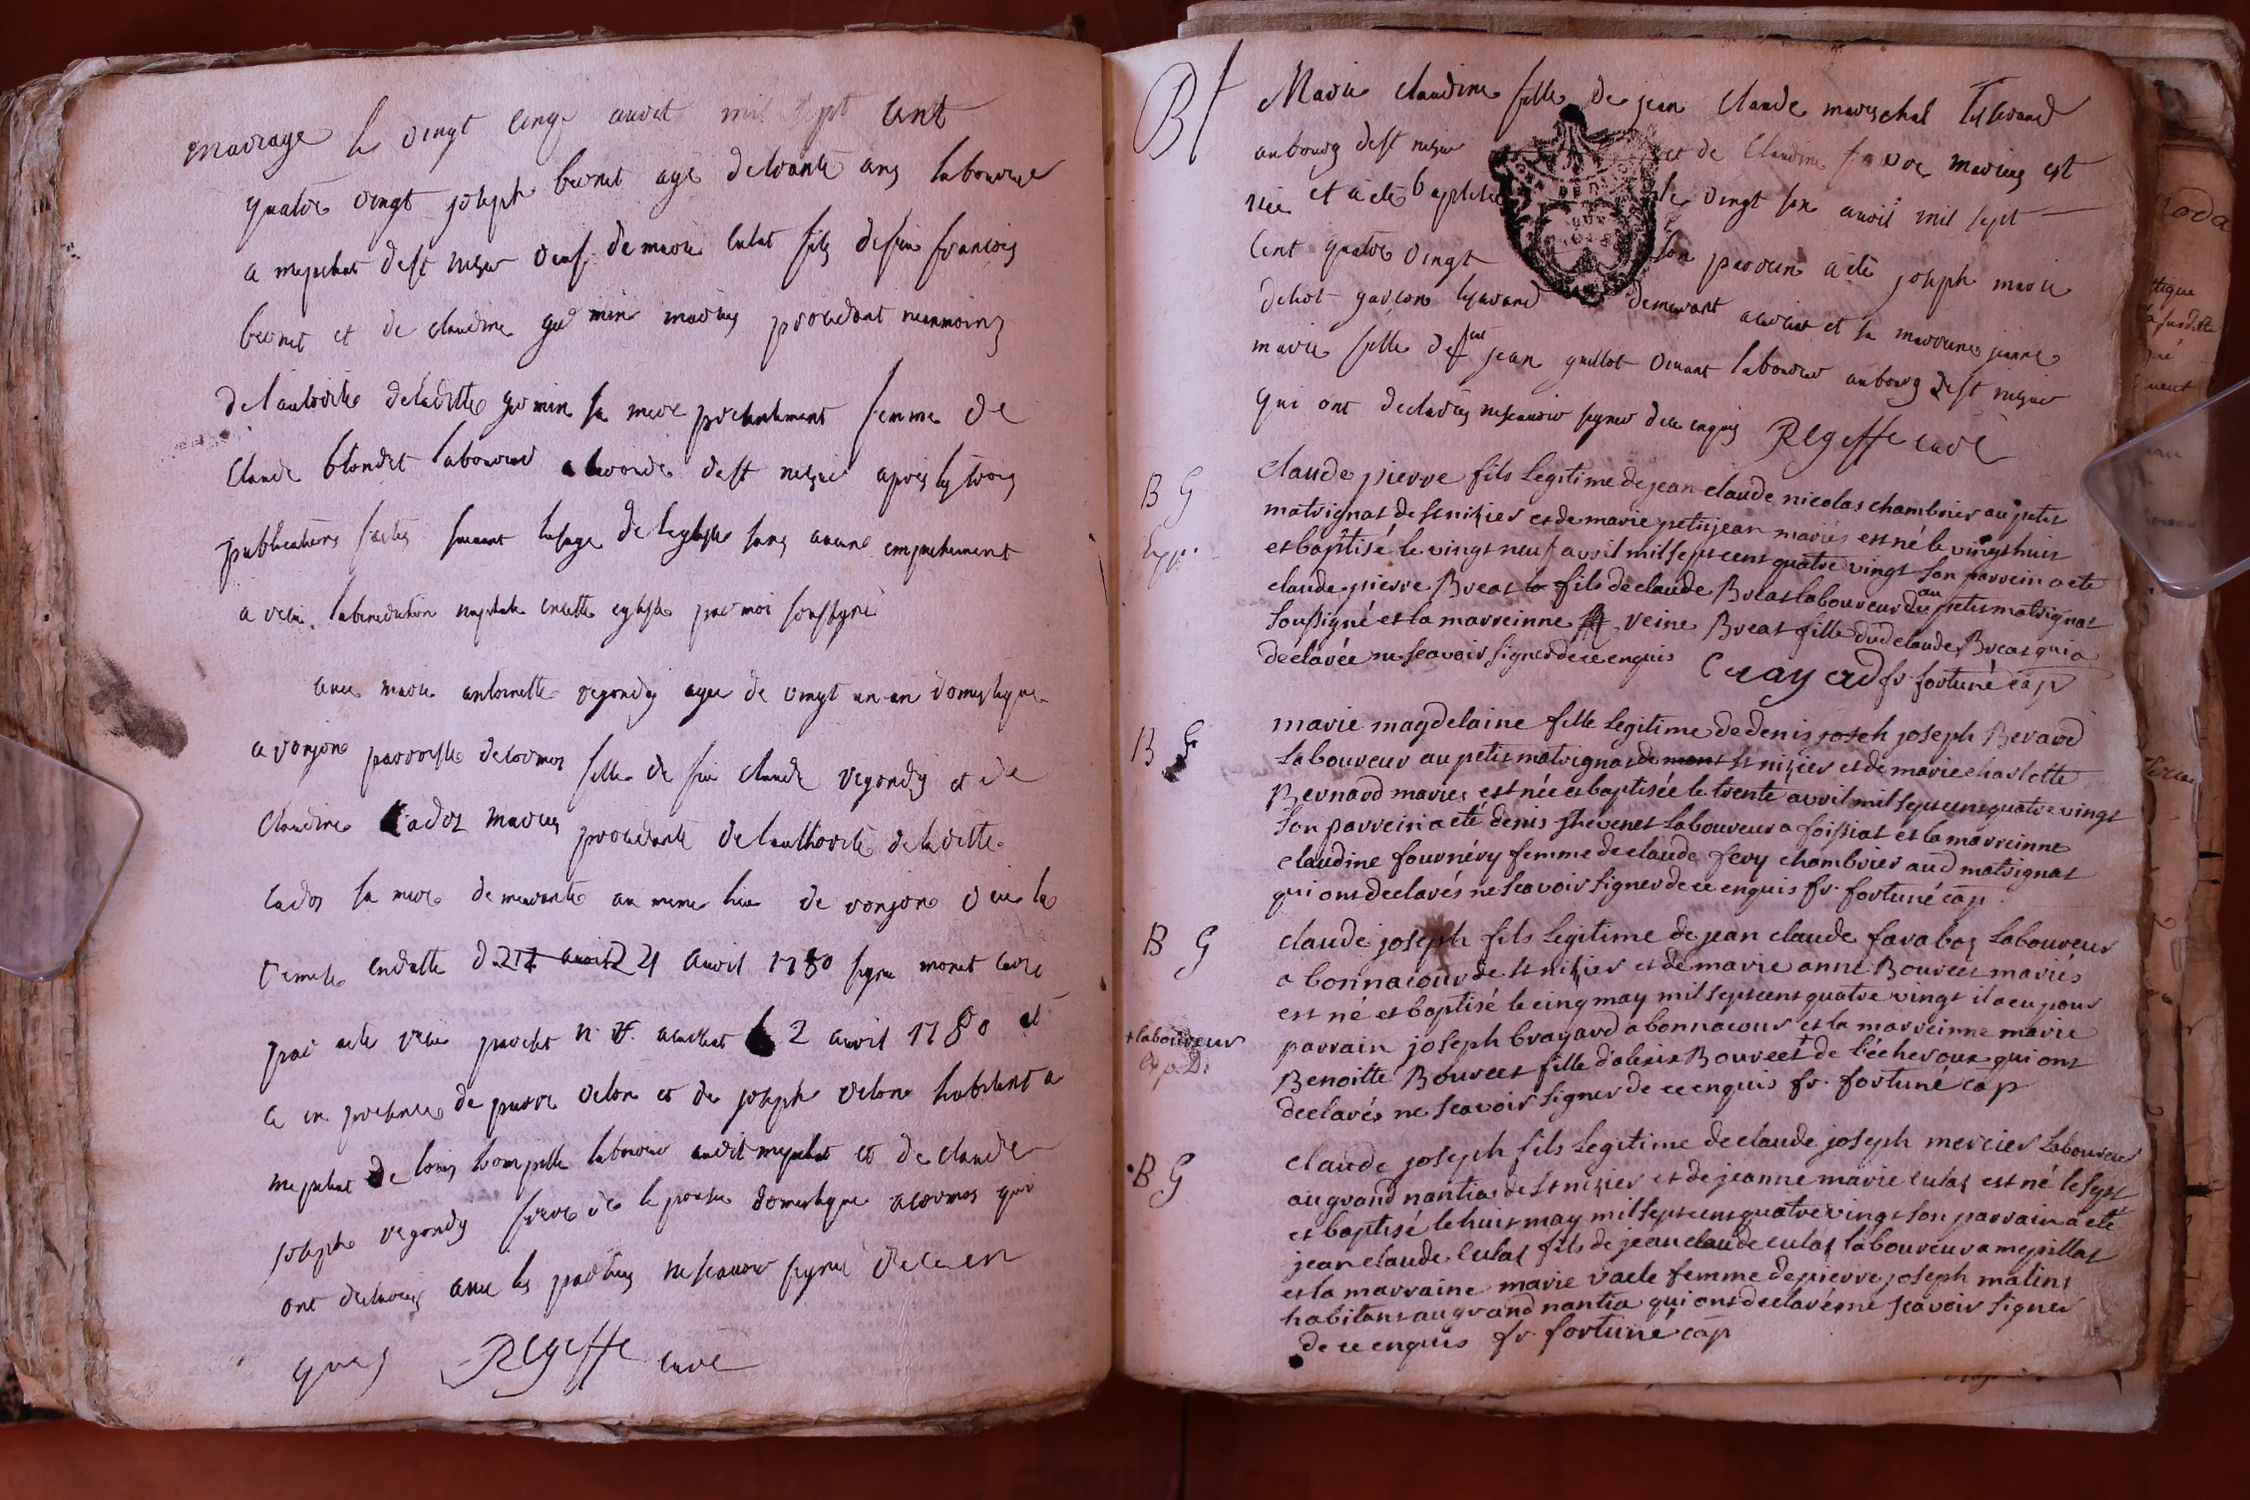 mariage le vingt cinq avril mil sept cent
quatre vingt joseph bernet age de trante ans laboureur
a mepilat de st nizier veuf de marie culat fils de feu francois
bernet et de claudine mariés procedant neanmoins
de l'autorité de laditte sa mere presentement femme de
claude blondet laboureur de st nizié apres les trois
publications faites suivant l'usage de leglise sans aucune empechement
a recu la benediction nuptiale en cette eglise par moi soussigné
avec marie antoinette regondy agee de vingt un an domestique
a vonjon parroisse de cormoz fille de feu claude regondy et de
claudine cadoz mariés procedante de lauthorité de laditte
cadoz sa mere demeurante au meme lieu de vonjon veu la
remise en datte d 21 avril 1780 signe monet curé
par acte recu 2 avril 1780 et
ce en presence de pierre velon et de joseph velon habitant a
mepilat de louis laboureur audit mepilat et de claude
joseph regondy frere de le pouse domestique a cormoz qui
ont declarés avec les parties ne scavoir signe de ce en
quis Regeffe curé
Bf
Marie claudine fille de jean claude mareschal tisserand
au bourg de st nizier et de claudine favre mariés est
née et a eté baptisée le vingt six avril mil sept
cent quatre vingt son parrein a eté joseph marie
garcon tisserand demeurant et sa marreine jeanne
marie fille de fut jean guillot vivant laboureur au bourg de st nizier
qui ont declarés ne scavoir signer de ce enquis Regeffe curé
B G
Exp.
claude pierre fils legitime de jean claude nicolas chambrier au petit
matrignat de st nizier et de marie petitjean mariés est né le vingt huit
et baptisé le vingt neuf avril mil sept cent quatre vingt son parrein a eté
claude pierre Breat fils de claude Breat laboureur au petit matrignat
soussigné et la marreinne reine Breat fille dud claude Breat qui a
declarée ne scavoir signer de ce enquis fr fortuné cap
B f
marie magdelaine fille legitime de denis joseh joseph Berard
laboureur au petit matrignat de mont st nizier et de marie charlotte
Bernard mariés est née et baptisée le trente avril mil sept cent quatre vingt
son parrein a eté denis thevenet laboureur a foissiat et la marreinne
claudine fournéry femme de claude fevy chambrier aud matrignat
qui ont declarés ne scavoir signer de ce enquis fr. fortuné cap.
B G
claude joseph fils legitime de jean claude faraboz laboureur
a bonnacour de st nizier et de marie anne Bourcet mariés
est né et baptisé le cinq may mil sept cent quatre vingt il a eu pour
parrain joseph brayard a bonnacour et la marreinne marie
+ laboureur
exp. D.
Benoitte Bourcet fille d'alexis Bourcet + de l'écheroux qui ont
declarés ne scavoir signer de ce enquis fr. fortuné cap
B G
claude joseph fils legitime de claude joseph mercier laboureur
au grand nantia de st nizier et de jeanne marie culas est né le sept
et baptisé le huit may mil sept cent quatre vingt son parrain a eté
jean claude culas fils de jean claude culas laboureur a mepillat
et la marraine marie vaele femme de pierre joseph matins
habitant au grand nantia qui ont declarés ne scavoir signer
de ce enquis fr fortuné cap